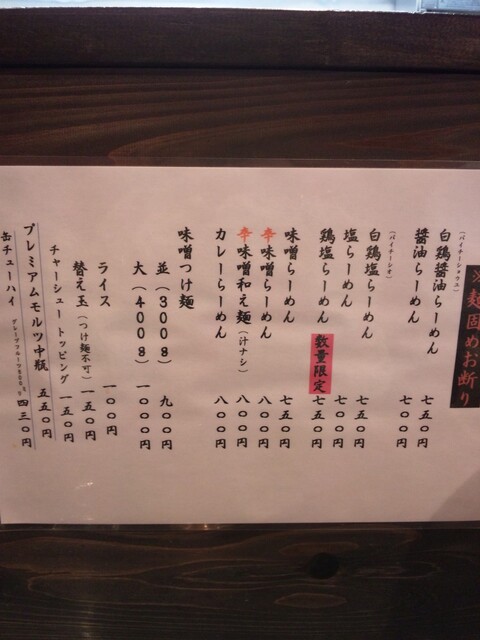 ※麺固めお断り
(パイチーショウユ)
白鶏醤油らーめん 七五〇円
醤油らーめん 七〇〇円
(パイチーシオ)
白鶏塩らーめん 七五〇円
塩らーめん 七〇〇円
鶏塩らーめん 数量限定 七五〇円
味噌らーめん 七五〇円
辛味噌らーめん 八〇〇円
辛味噌和え麺(汁ナシ) 八〇〇円
カレーらーめん 八〇〇円
味噌つけ麺
並(300g) 九〇〇円
大(400g) 一〇〇〇円
ライス 一〇〇円
替え玉(つけ麺不可) 一五〇円
チャーシュートッピング 一五〇円
プレミアムモルツ中瓶 五五〇円
缶チューハイ グレープフルーツ 四三〇円